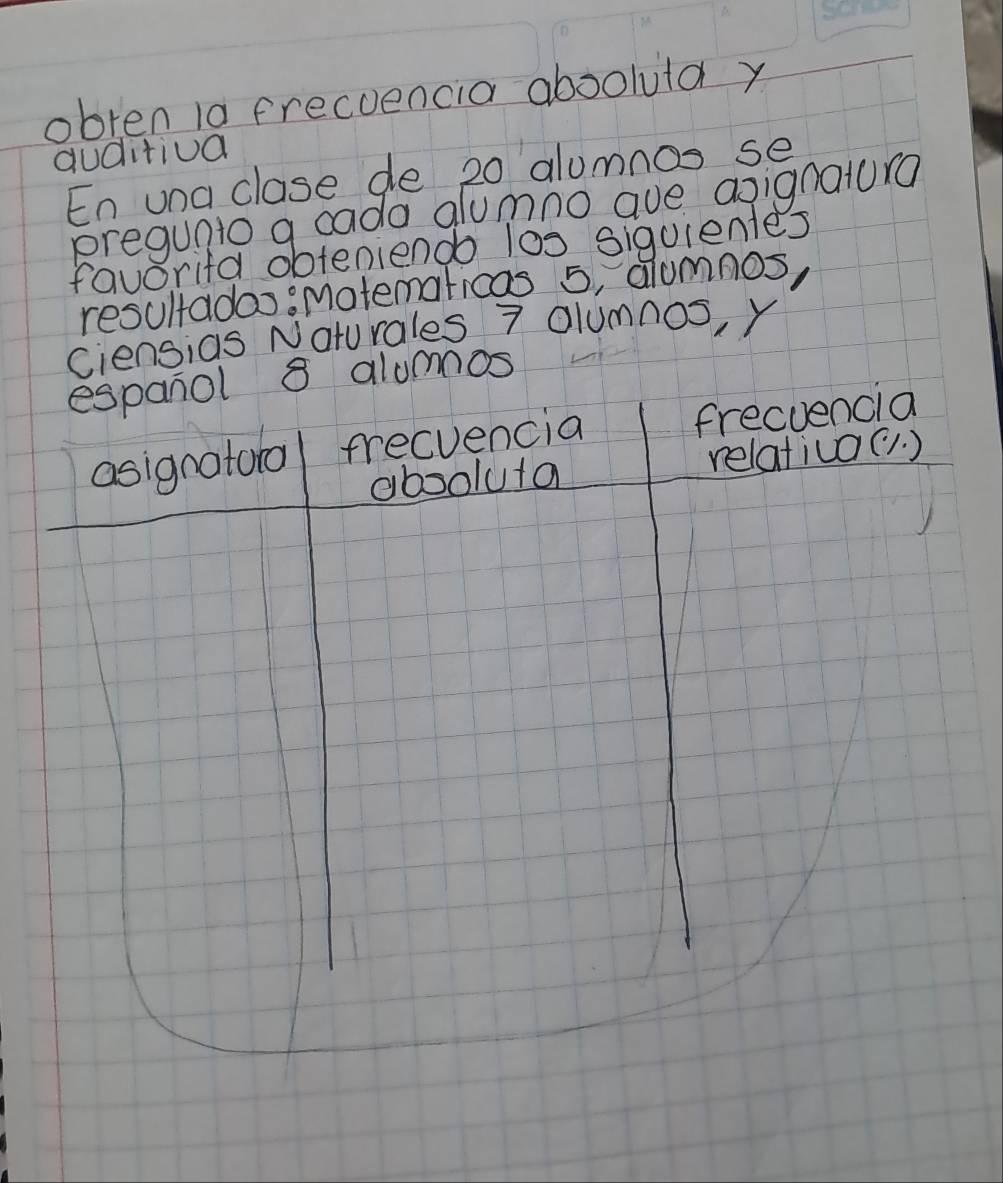 obten la frecuencia absoluta y
auditiva
En una clase de 20 alumnos se
pregunto a cada alumno que asignatura
favorita obteniendo los siguientes
resultados: Matematicas 5, alumnos,
ciensias Naturales 7 alumnos, y
español 8 alumnos
asignatura frecuencia absoluta frecuencia relativa (%)